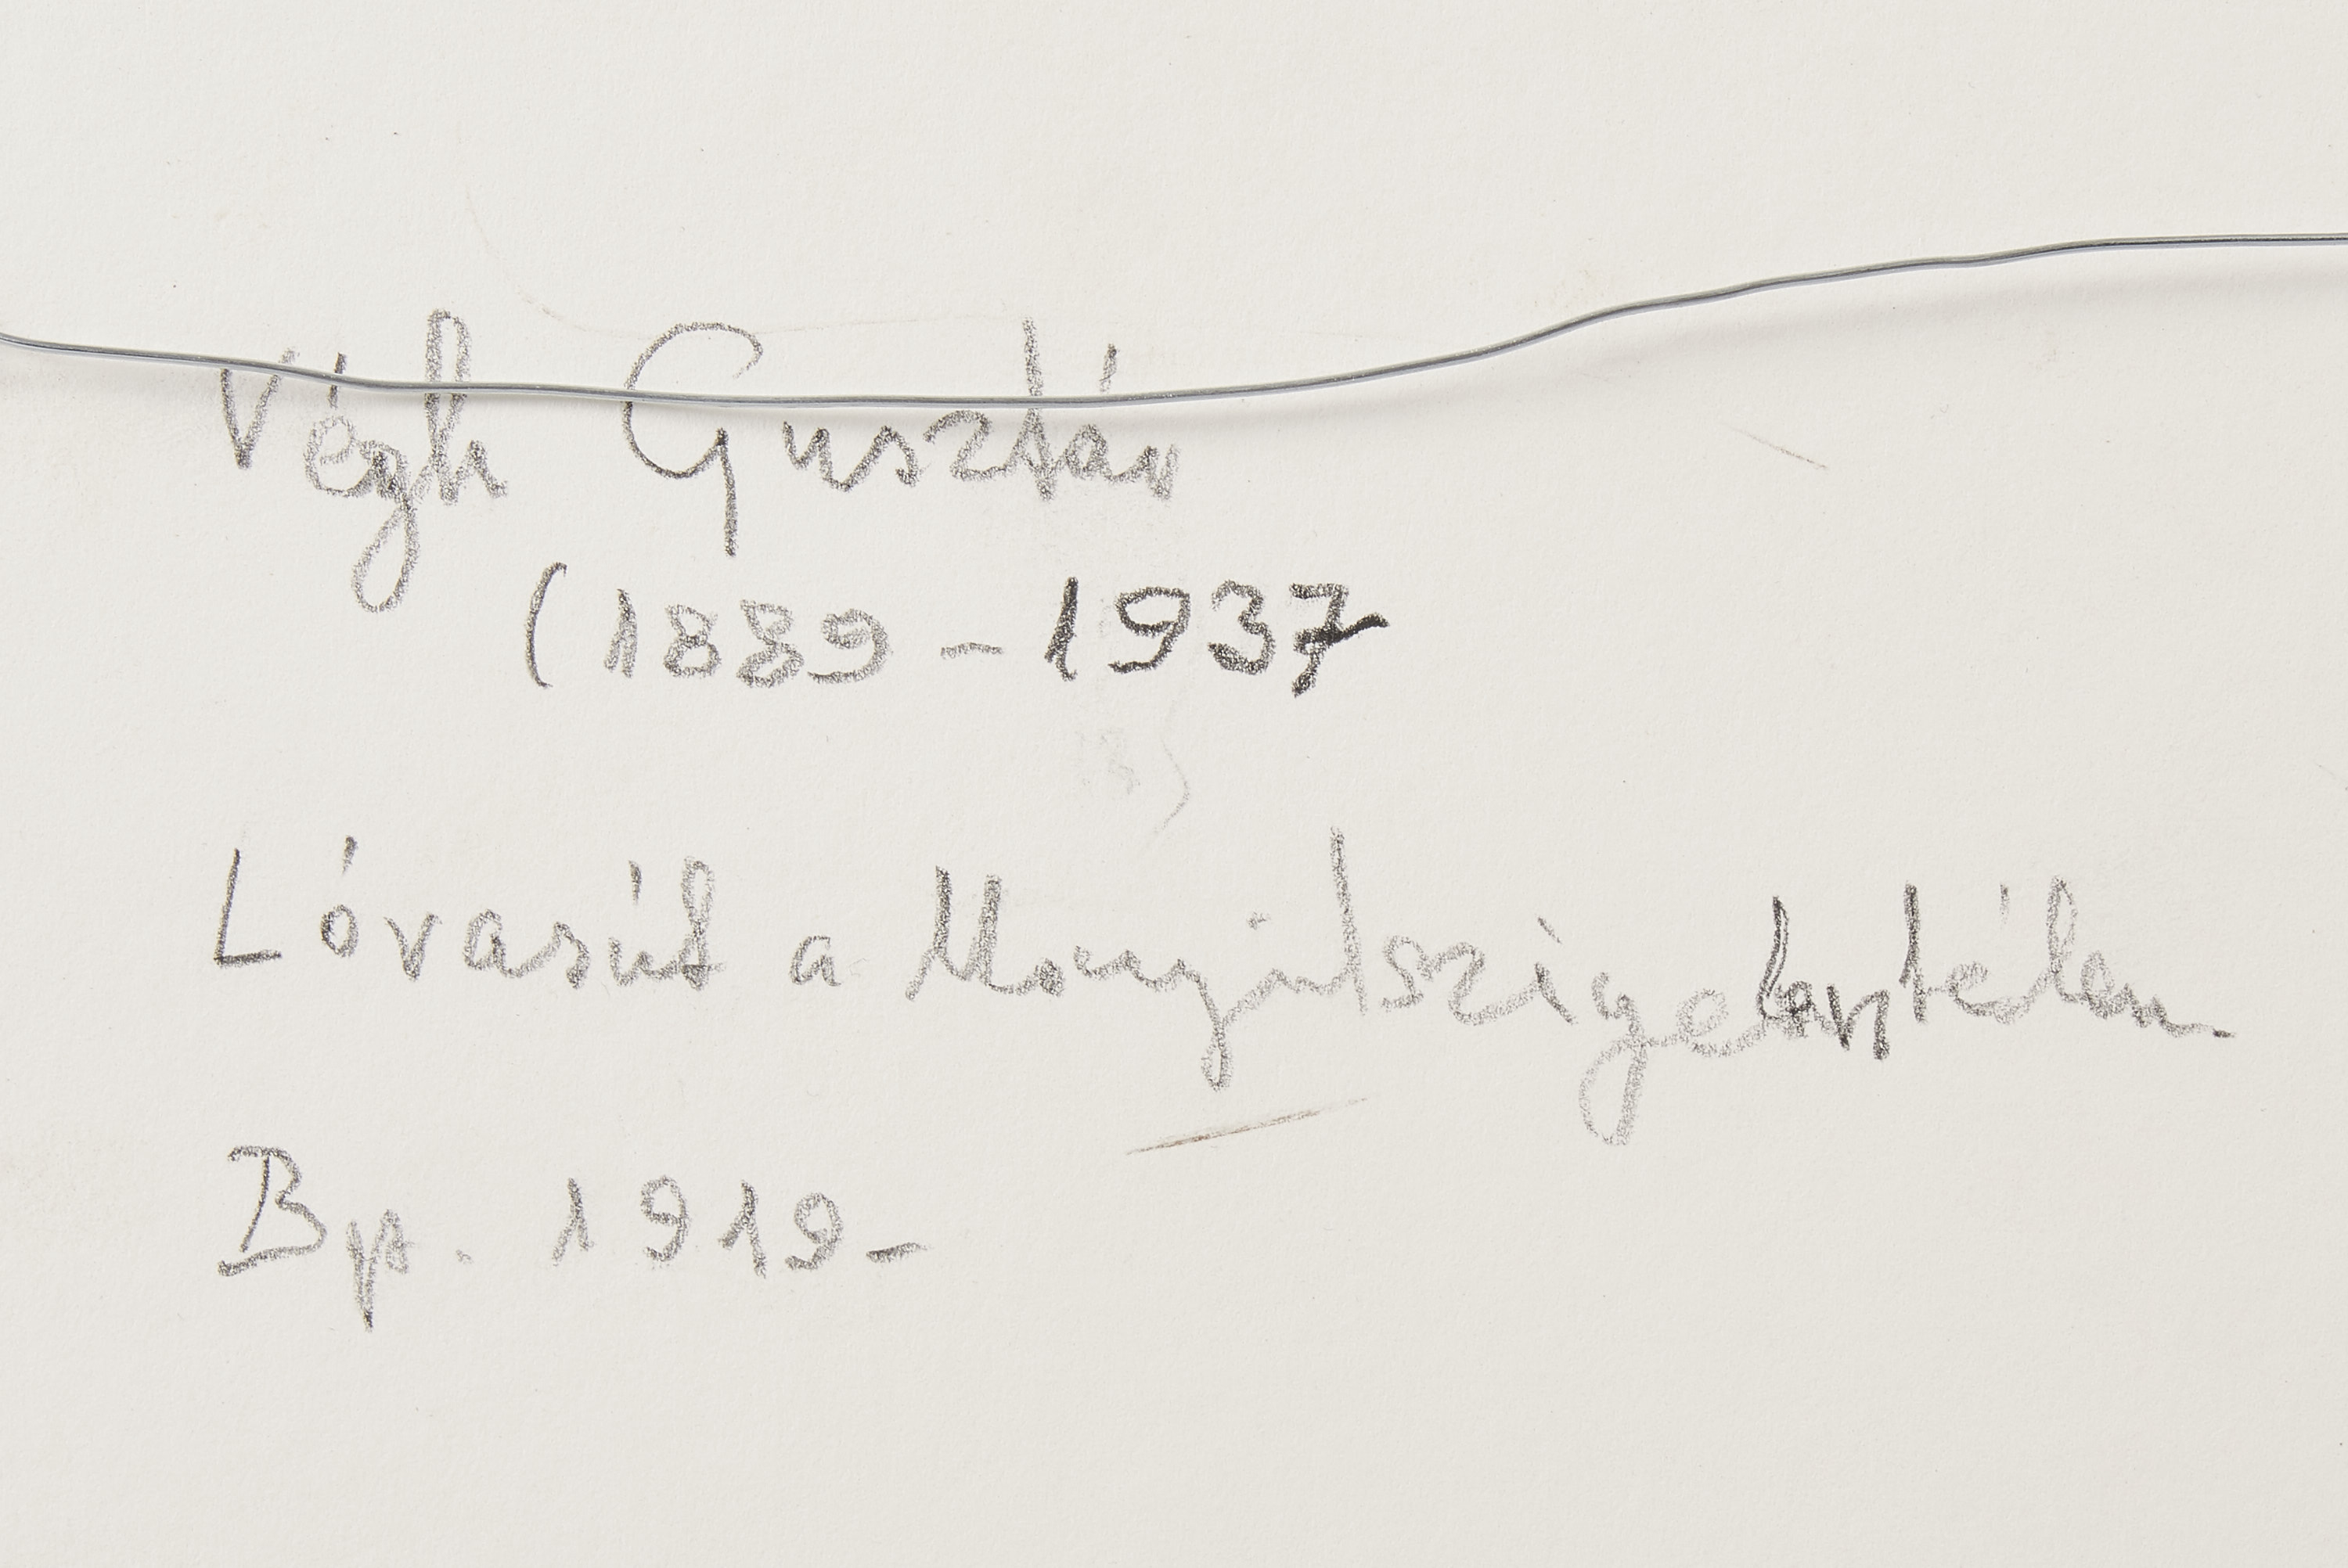 Végh Gusztáv
(1889 - 1937
Lóvasút a Margitszigeten télen
Bp. 1919-